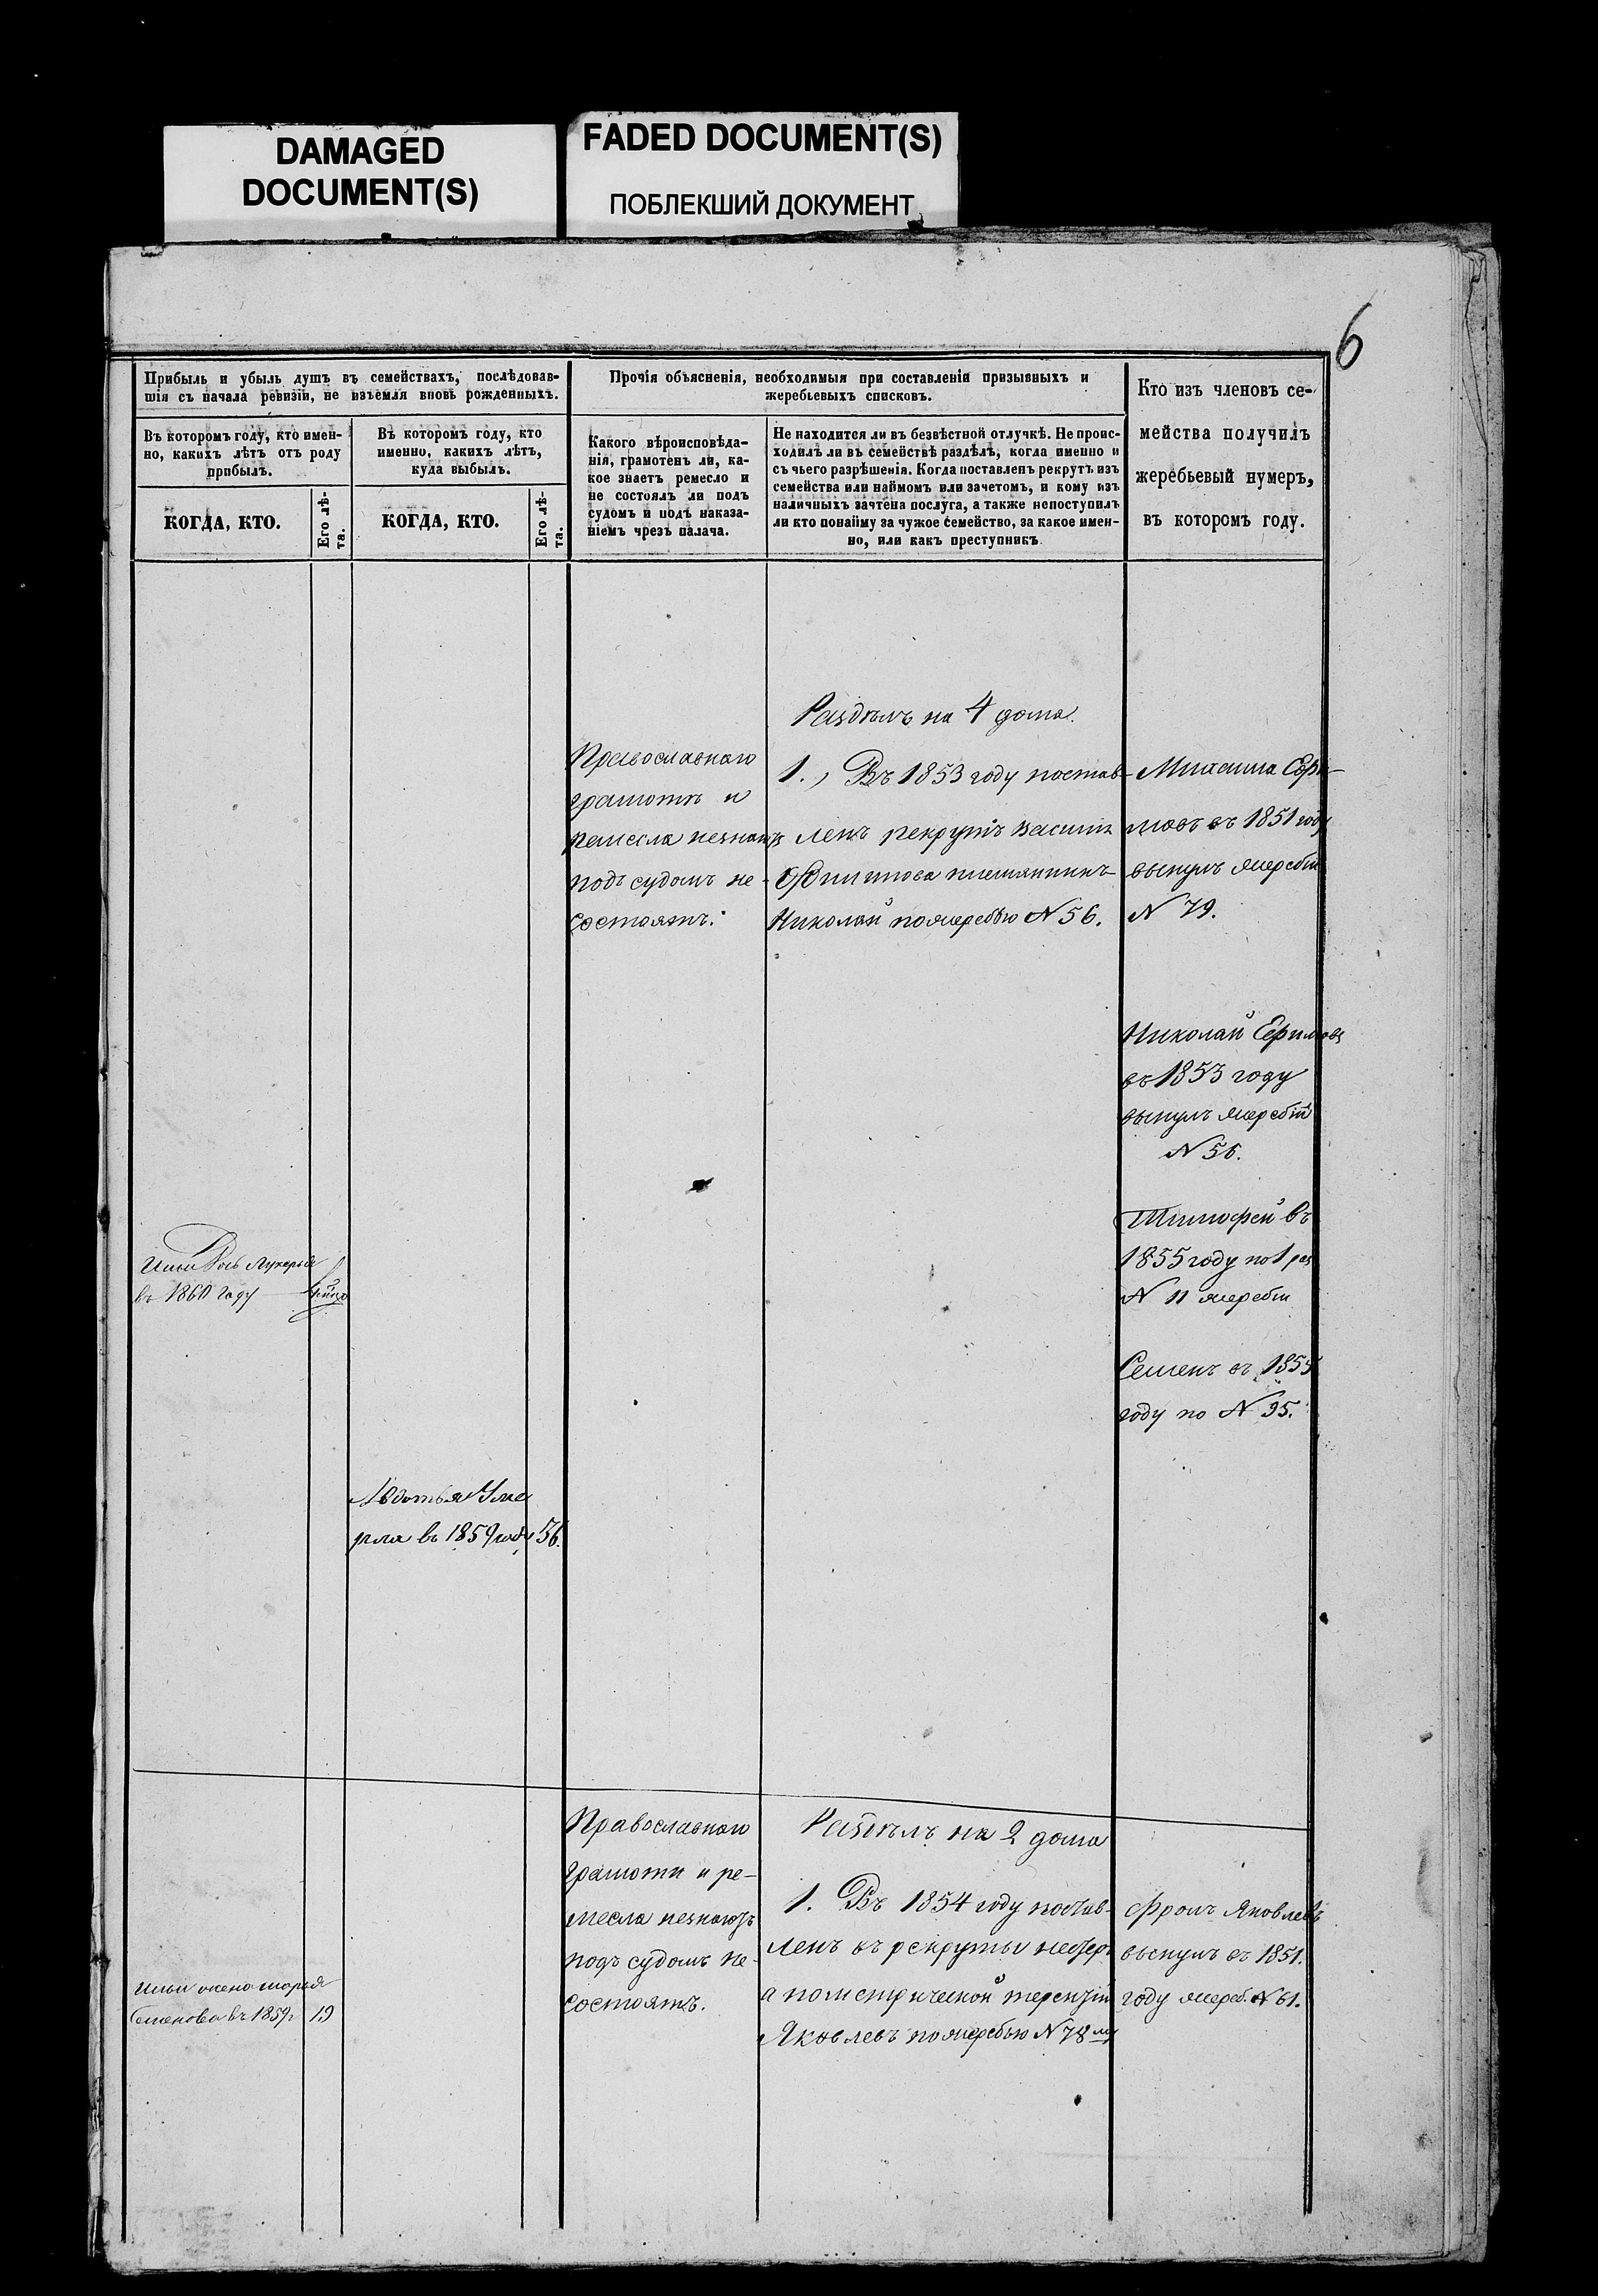 DAMAGED
DOCUMENT(S)
FADED DOCUMENT(S)
ПОБЛЕКШИЙ ДОКУМЕНТ
6
Прибыль и убыль душъ въ семействахъ, послѣдовав-
шія съ начала ревизіи, не изъемля вновь рожденныхъ.
Въ которомъ году, кто имен-
но, какихъ лѣтъ отъ роду
прибылъ.
КОГДА, КТО.
Его лѣ-
та.
Въ которомъ году, кто
именно, какихъ лѣтъ,
куда выбылъ.
КОГДА, КТО.
Его лѣ-
та.
Прочія объясненія, необходимыя при составленіи призывныхъ и
жеребьевыхъ списковъ.
Какого вѣроисповѣда-
нія, грамотенъ ли, ка-
кое знаетъ ремесло и
не состоялъ ли подъ
судомъ и подъ наказа-
ніемъ чрезъ палача.
Не находится ли въ безвѣстной отлучкѣ. Не проис-
ходилъ ли въ семействѣ раздѣлъ, когда именно и
съ чьего разрѣшенія. Когда поставленъ рекрутъ изъ
семейства или наймомъ или зачетомъ, и кому изъ
наличныхъ зачтена послуга, а также непоступилъ
ли кто понайму за чужое семейство, за какое имен-
но, или какъ преступникъ
Кто изъ членовъ се-
мейства получилъ
жеребьевый нумеръ,
въ которомъ году.
Раздѣлъ на 4 дома.
Православнаго
грамотѣ и
ремесла незнаютъ
подъ судомъ не-
состоятъ.
1., Въ 1853 году постав-
ленъ рекрутъ
племянникъ
Николай пожеребью N 56.
въ 1851 году
вынулъ жеребій
N 79.
Николай
въ 1853 году
вынулъ жеребій
N 56.
Тимофей въ
1855 году по 1
N 11 жеребій
Семенъ въ 1855
году по N 95.
въ 1860 году
Авдотья Уме
рла въ 1859 году 56.
Православнаго
грамоти и ре-
месла незнаютъ
подъ судомъ не-
состоятъ.
Раздѣлъ на 2 дома
1. Въ 1854 году постав-
ленъ въ рекруты
а по метрической терентій
Яковлевъ пожеребью N 78 му
Фролъ Яковлевъ
вынулъ въ 1851.
году жереб. N 61.
Семенова въ 1859г 19